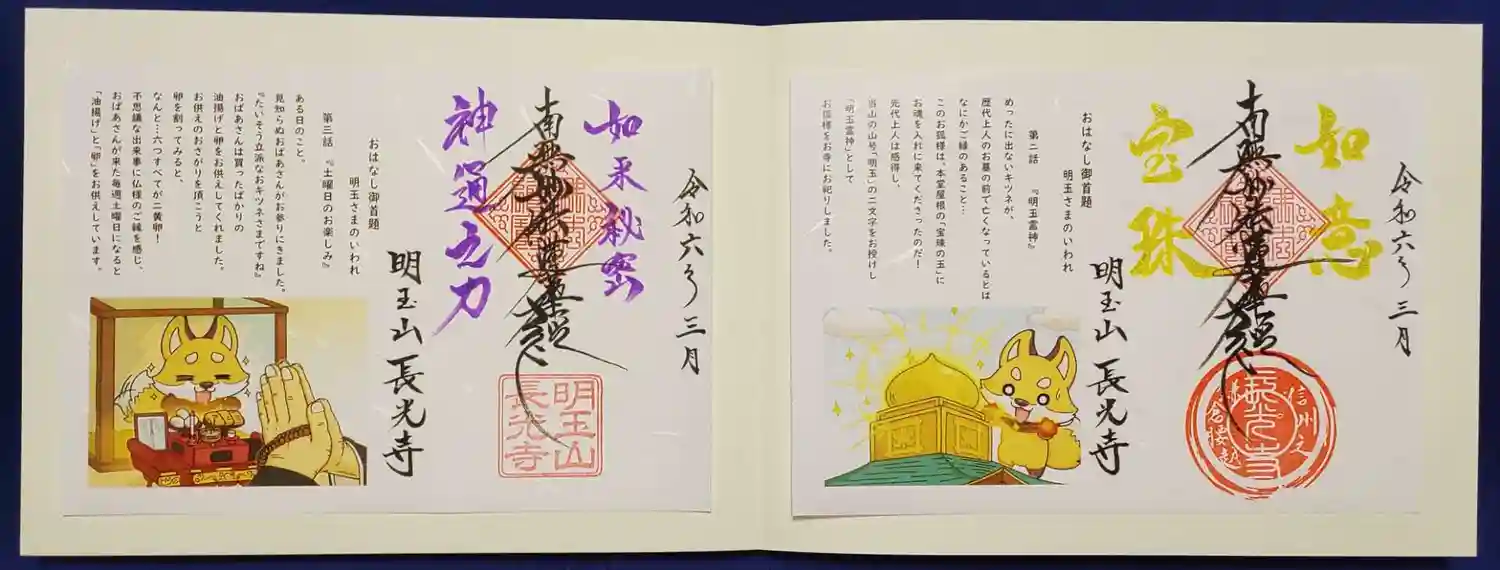 令和六年 三月
如意
南無妙法蓮華経
宝珠
信州之
長光寺
明玉山 長光寺
おはなし御首題
明玉さまのいわれ
第二話 『明玉霊神』
めったに出ないキツネが、
歴代上人のお墓の前で亡くなっているとは
なにかご縁のあること…
このお狐様は、本堂屋根の「宝珠の玉」に
お魂を入れに来てくださったのだ！
先代上人は感得し、
当山の山号「明玉」の二文字をお授けし
「明玉霊神」として
お狐様をお寺にお祀りしました。
令和六年 三月
如来秘密
南無妙法蓮華経
神通之力
明玉山
長光寺
明玉山 長光寺
おはなし御首題
明玉さまのいわれ
第三話 『土曜日のお楽しみ』
ある日のこと。
見知らぬおばあさんがお参りにきました。
『たいそう立派なおキツネさまですね』
おばあさんは買ったばかりの
油揚げと卵をお供えしてくれました。
お供えのおさがりを頂こうと
卵を割ってみると、
なんと…六つすべてが二黄卵！
不思議な出来事に仏様のご縁を感じ、
おばあさんが来た毎週土曜日になると
「油揚げ」と「卵」をお供えしています。